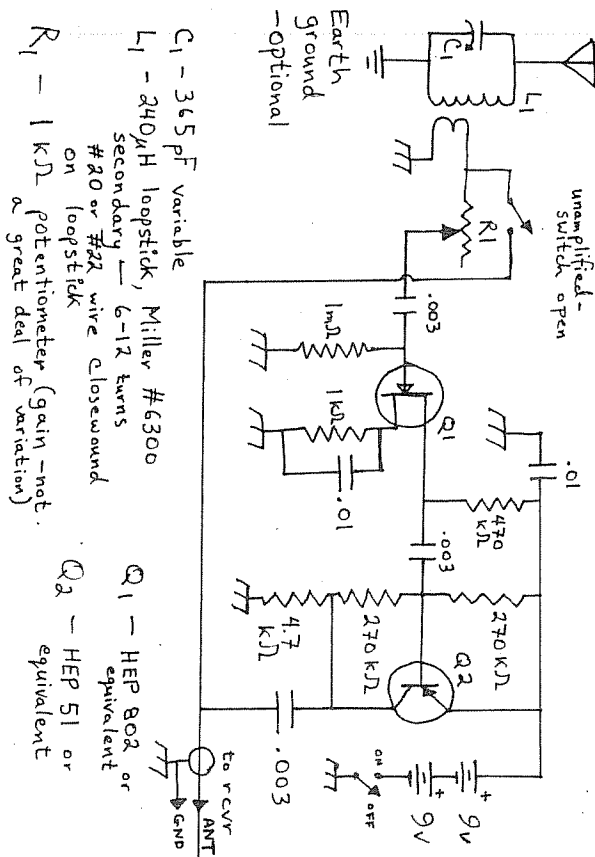 Earth
ground
-optional
C1
L1
unamplified-
switch open
R1
.003
1mΩ
1kΩ
.01
Q1
.01
470
KΩ
.003
4.7
KΩ
270KΩ
270KΩ
Q2
.003
ON
OFF
+
+
9v
9v
to rcvr
ANT
GND
C1 - 365 pF variable
L1 - 240μH loopstick, Miller #6300
secondary - 6-12 turns
#20 or #22 wire closewound
on loopstick
R1 - 1 KΩ potentiometer (gain - not
a great deal of variation)
Q1 - HEP 802 or
equivalent
Q2 - HEP 51 or
equivalent